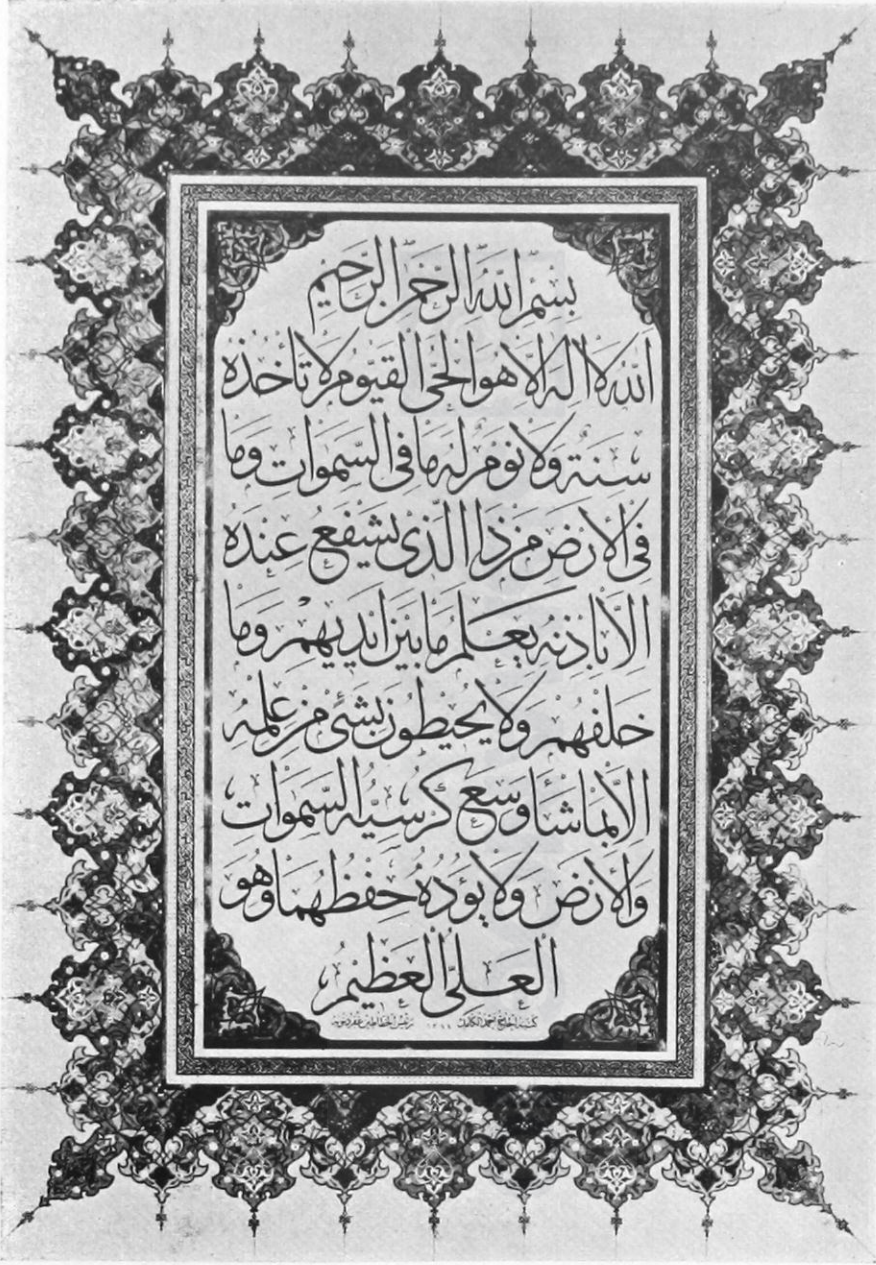 بسم الله الرحمن الرحيم
الله لا اله الا هو الحي القيوم لا تأخذه
سنة ولا نوم له ما في السموات وما
في الارض من ذا الذي يشفع عنده
الا باذنه يعلم ما بين ايديهم وما
خلفهم ولا يحيطون بشئ من علمه
الا بما شاء وسع كرسيه السموات
والارض ولا يؤده حفظهما وهو
العلي العظيم
كتبه الحاج احمد الكامل